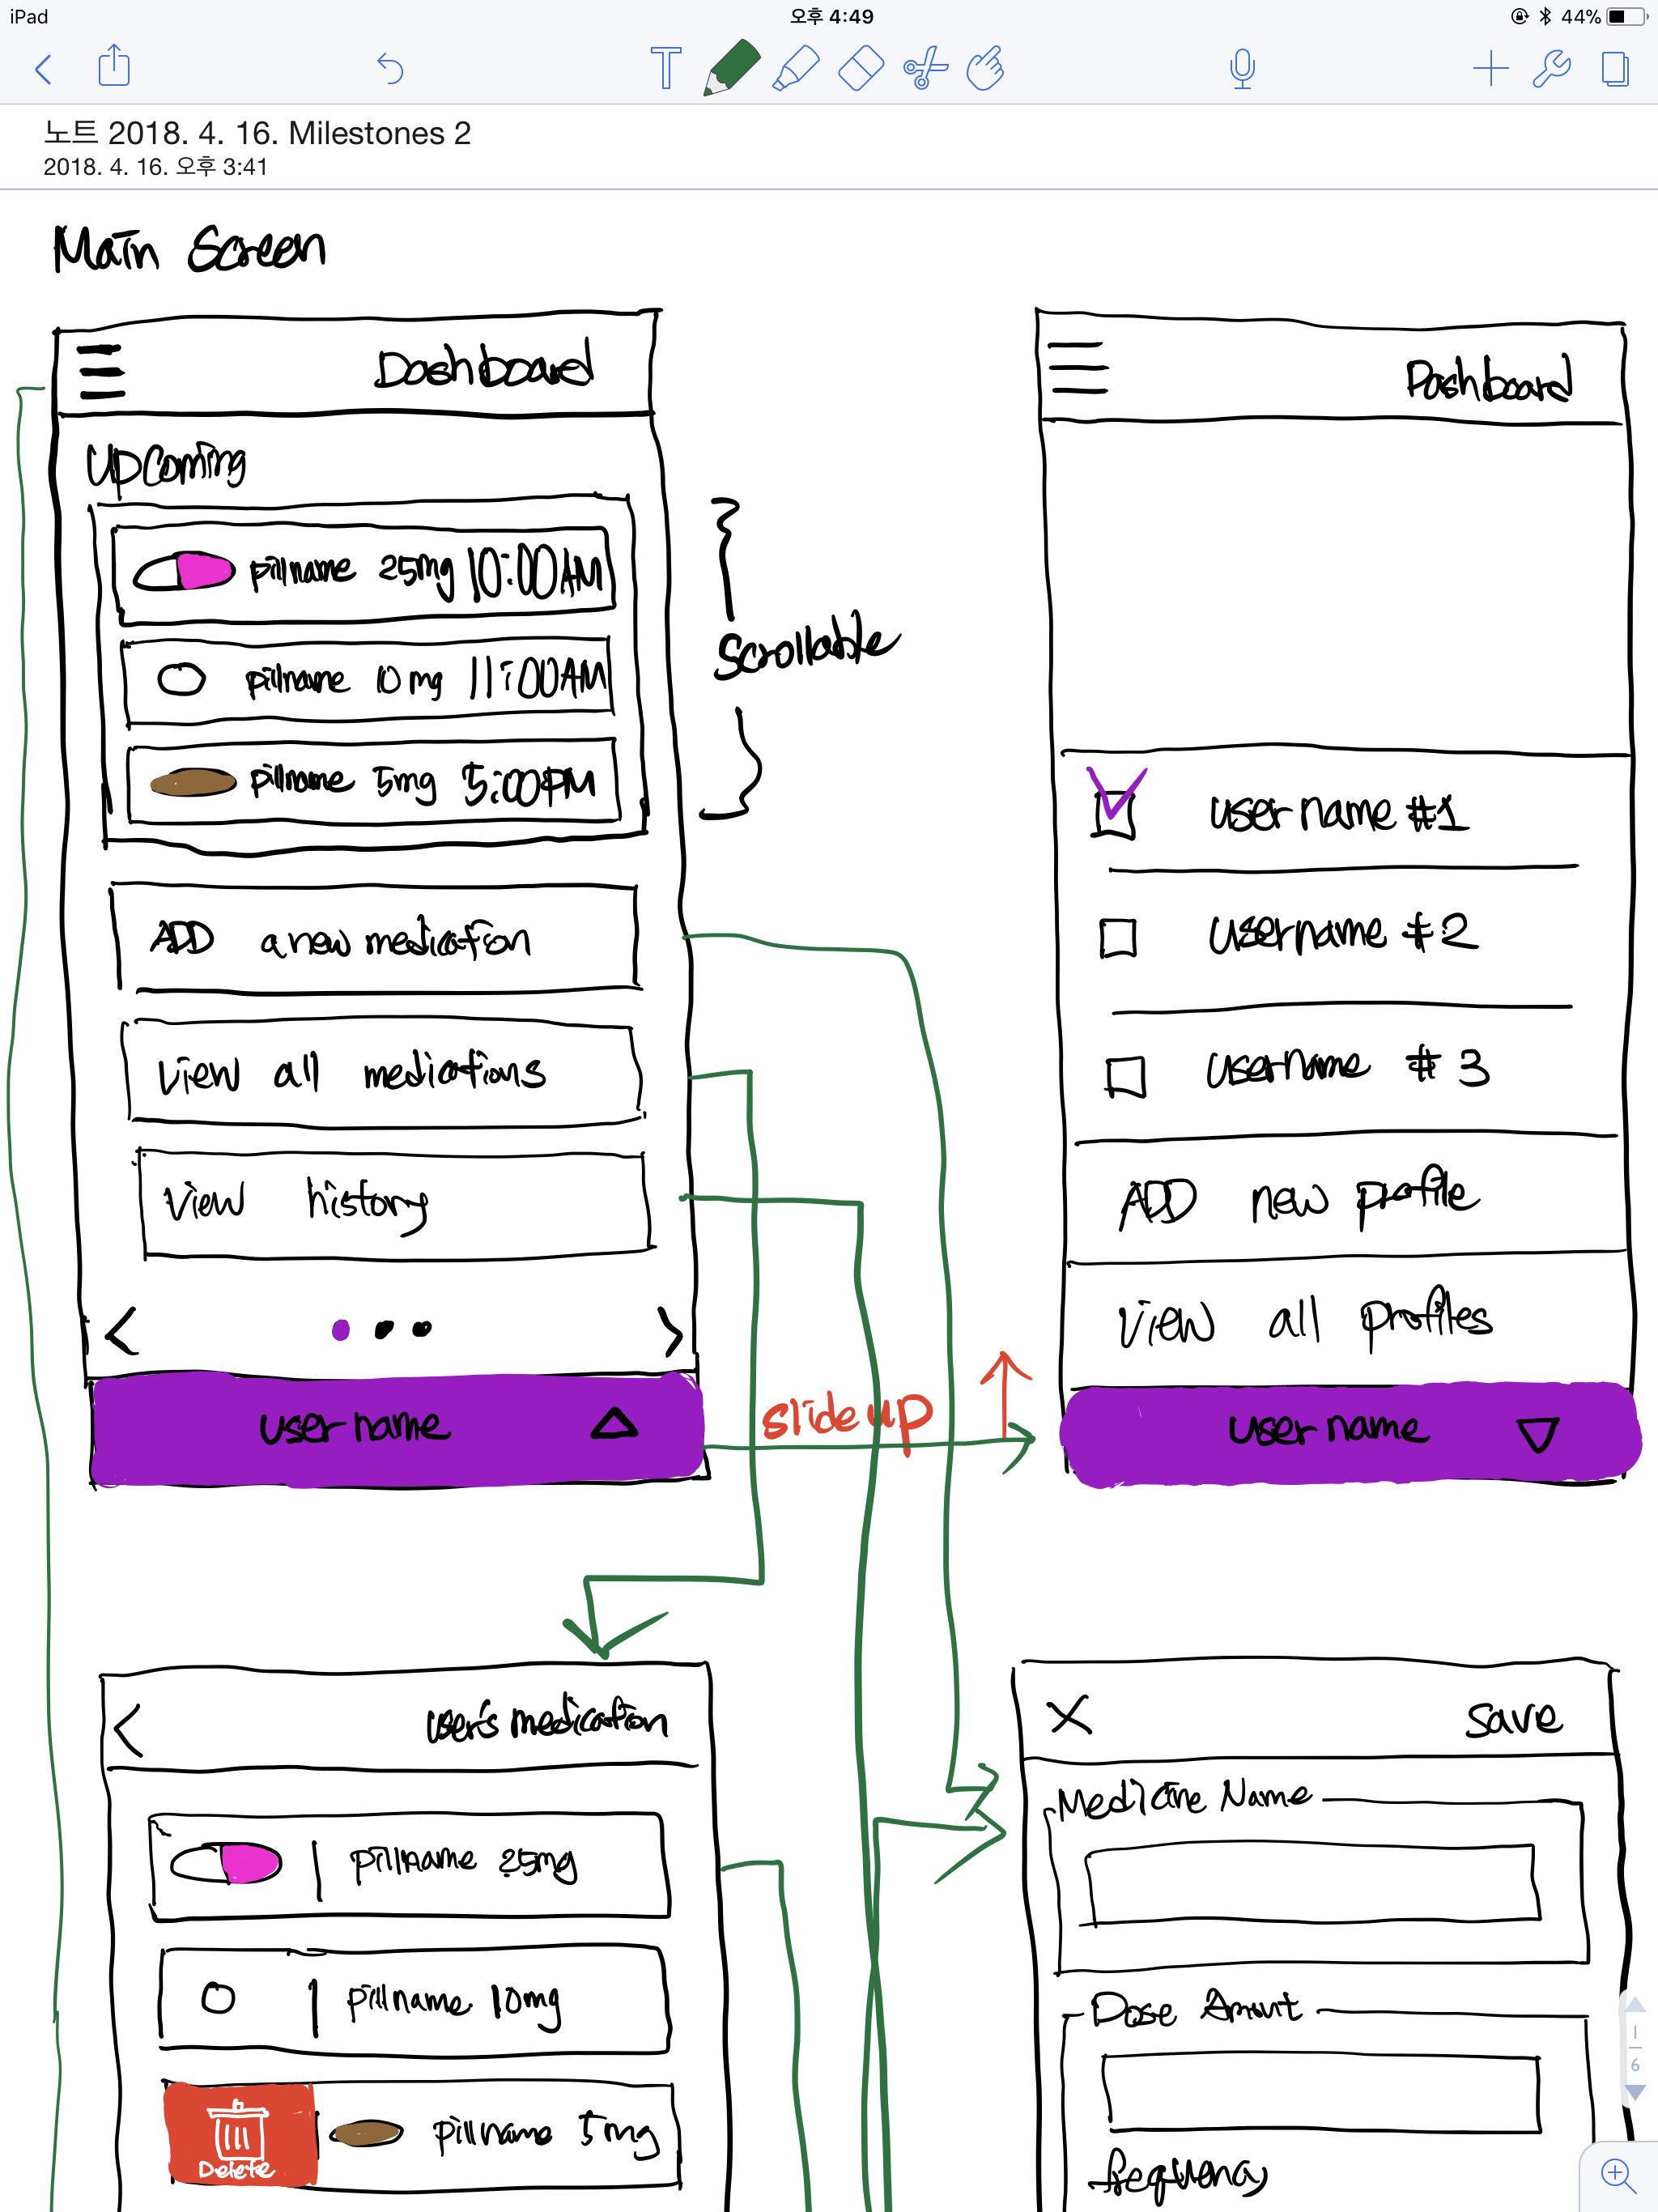 iPad
오후 4:49
44%
노트 2018. 4. 16. Milestones 2
2018. 4. 16. 오후 3:41
Main Screen
Dashboard
Upcoming
pillname 25mg 10:00AM
pillname 10mg 11:00AM
pillname 5mg 5:00PM
Scrollable
ADD a new medication
View all medications
View history
username
slide up
Dashboard
username #1
username #2
username #3
ADD new profile
View all profiles
username
user's medication
pillname 25mg
pillname 10mg
Delete
pillname 5mg
Save
Medicine Name
Dose Amount
frequency
1
6